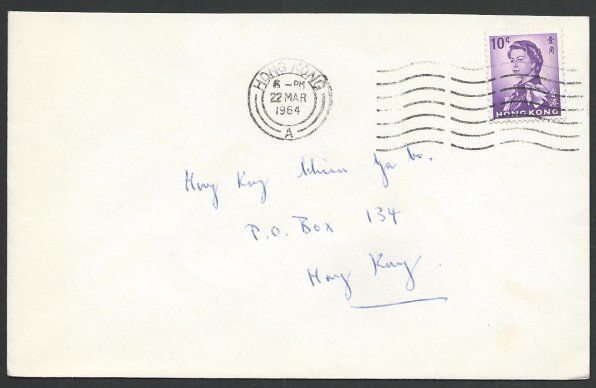 HONG KONG
6 - PM
22 MAR
1964
A
10¢ 壹角
HONG KONG
Hong Kong
P.O. Box 134
Hong Kong.